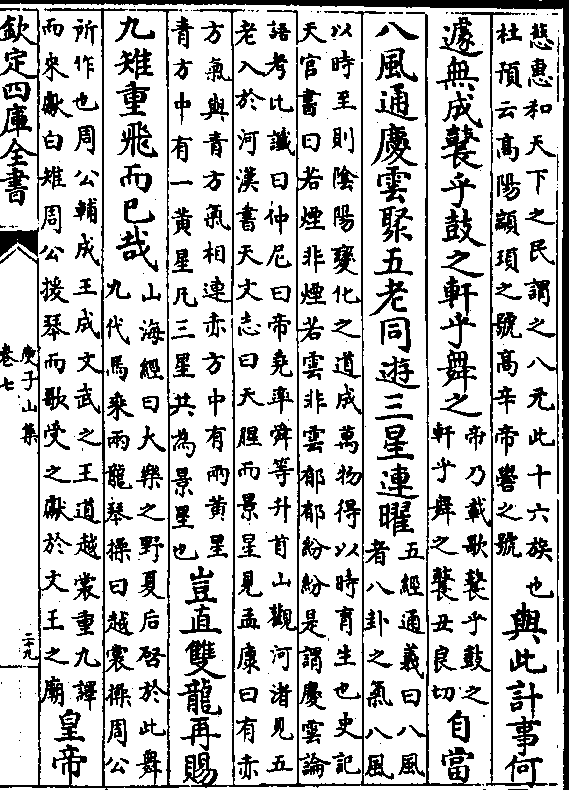 慈惠和天下之民謂之八元此十六族也
杜預云高陽顓頊之號高辛帝嚳之號
與此計事何
遽無成鼚乎鼓之軒乎舞之
帝乃載歌鼚乎鼓之
軒乎舞之鼚丑良切
自當
八風通慶雲聚五老同遊三星連曜
五經通義曰八風
者八卦之氣八風
以時至則陰陽變化之道成萬物得以時育生也史記
天官書曰若煙非煙若雲非雲郁郁紛紛是謂慶雲論
語考比讖曰仲尼曰帝堯率舜等升首山觀河渚見五
老入於河漢書天文志曰天腥而景星見孟康曰有赤
方氣與青方氣相連赤方中有兩黃星
青方中有一黃星凡三星共為景星也
豈直雙龍再賜
九雉重飛而已哉
山海經曰大樂之野夏后啓於此舞
九代馬乘兩龍琴操曰越裳操周公
所作也周公輔成王成文武之王道越裳重九譯
而來獻白雉周公援琴而歌受之獻於文王之廟
皇帝
欽定四庫全書
庾子山集
卷七
二十九